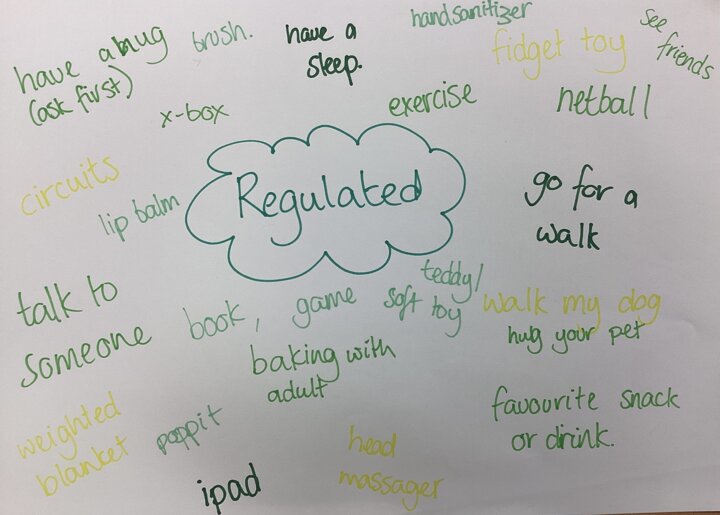 have a hug
(ask first)
brush.
have a
sleep.
handsanitizer
fidget toy
see
friends
x-box
exercise
netball
circuits
lip balm
Regulated
go for a
walk
talk to
someone
book, game
teddy/
soft toy
walk my dog
hug your pet
baking with
adult
weighted
blanket
poppit
ipad
head
massager
favourite snack
or drink.